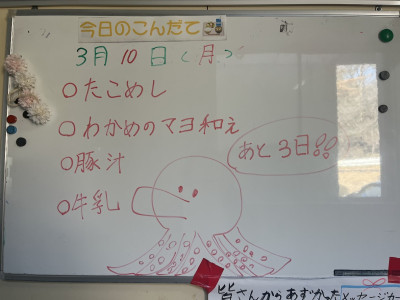 今日のこんだて
3月10日(月)
○たこめし
○わかめのマヨ和え
○豚汁
○牛乳
あと3日!!
皆さんからあずかったメッセージカー